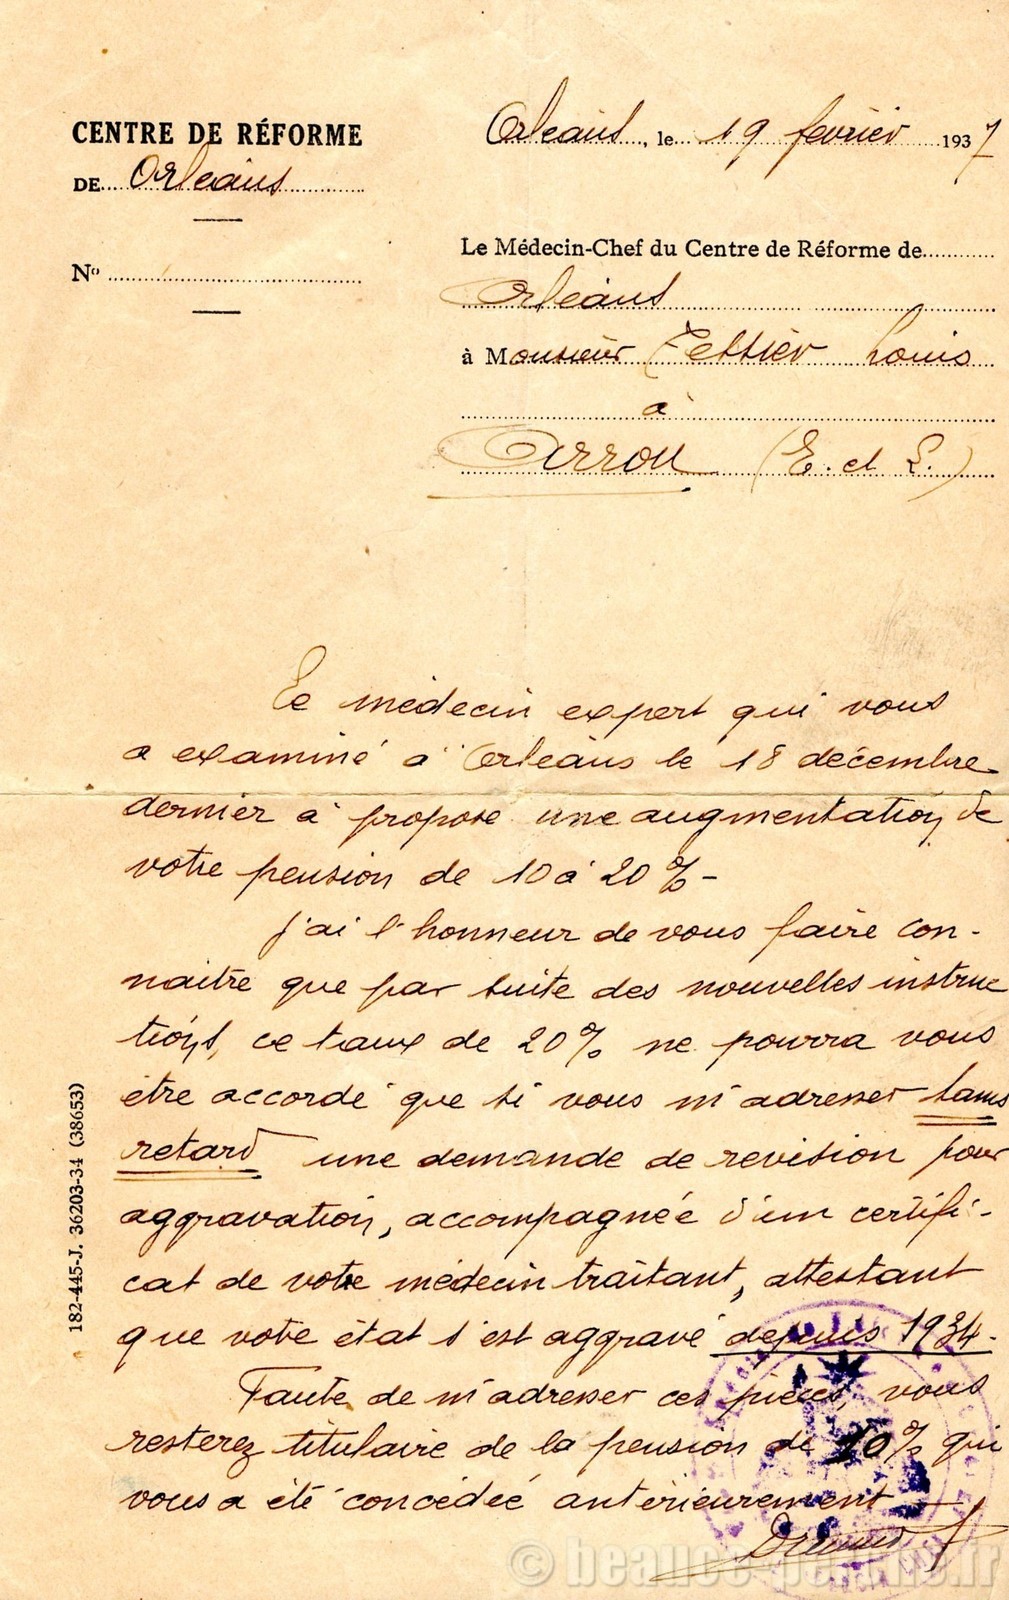 CENTRE DE RÉFORME
DE Orléans
Nº
Orléans, le 19 février 1937
Le Médecin-Chef du Centre de Réforme de
Orléans
à Monsieur Tessier Louis
à
Arrou (E. et L.)
Le médecin expert qui vous
a examiné à Orléans le 18 décembre
dernier a proposé une augmentation de
votre pension de 10 à 20% -
J'ai l'honneur de vous faire con-
naitre que par suite des nouvelles instruc
tions, ce taux de 20% ne pourra vous
être accordé que si vous m'adresser sans
retard une demande de revision pour
aggravation, accompagnée d'un certifi-
cat de votre médecin traitant, attestant
que votre état s'est aggravé depuis 1934.
Faute de m'adresser ces pièces, vous
resterez titulaire de la pension de 10% qui
vous a été concédée antérieurement
182-445-J. 36203-34 (38653)
© beauce-perche.fr